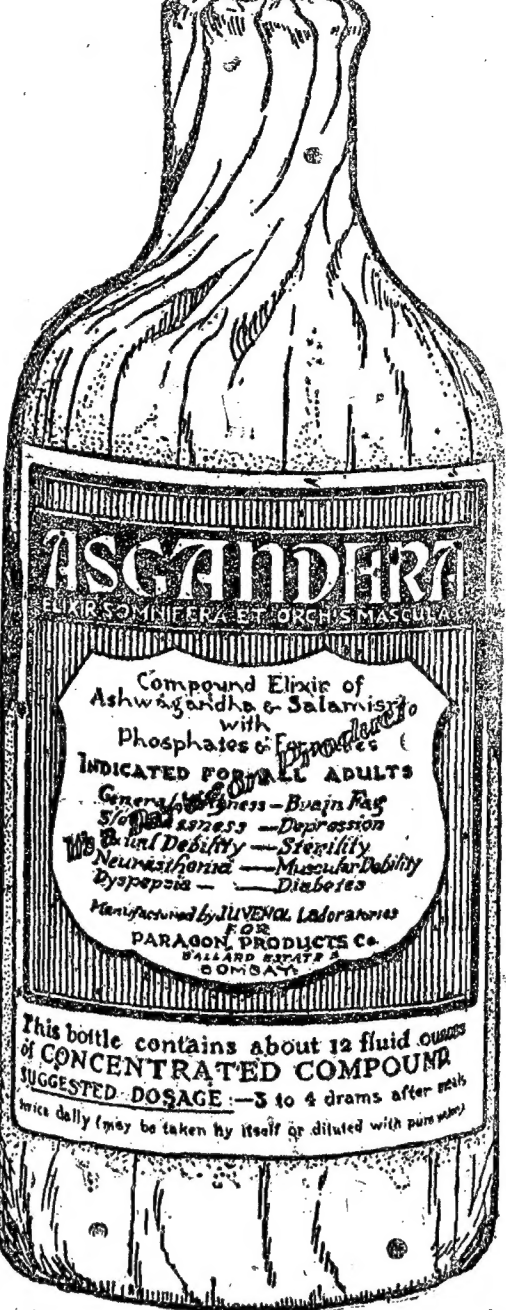 ASGANDHRA
ELIXIR SOMNIFERA ET ORCHIS MASCULAE
Compound Elixir of
Ashwagandha & Salamisri
with
Phosphates &
INDICATED FOR ALL ADULTS
General — Brain Fag
— Depression
Debility — Sterility
Neurasthenia — Muscular Debility
Dyspepsia — Diabetes
It's a Paragon Product.
Manufactured by JUVENOL Laboratories
FOR
PARAGON PRODUCTS Co.
BALLARD ESTATE
BOMBAY.
This bottle contains about 12 fluid ounces
of CONCENTRATED COMPOUND.
SUGGESTED DOSAGE:—3 to 4 drams after meals
twice daily (may be taken by itself or diluted with pure water)